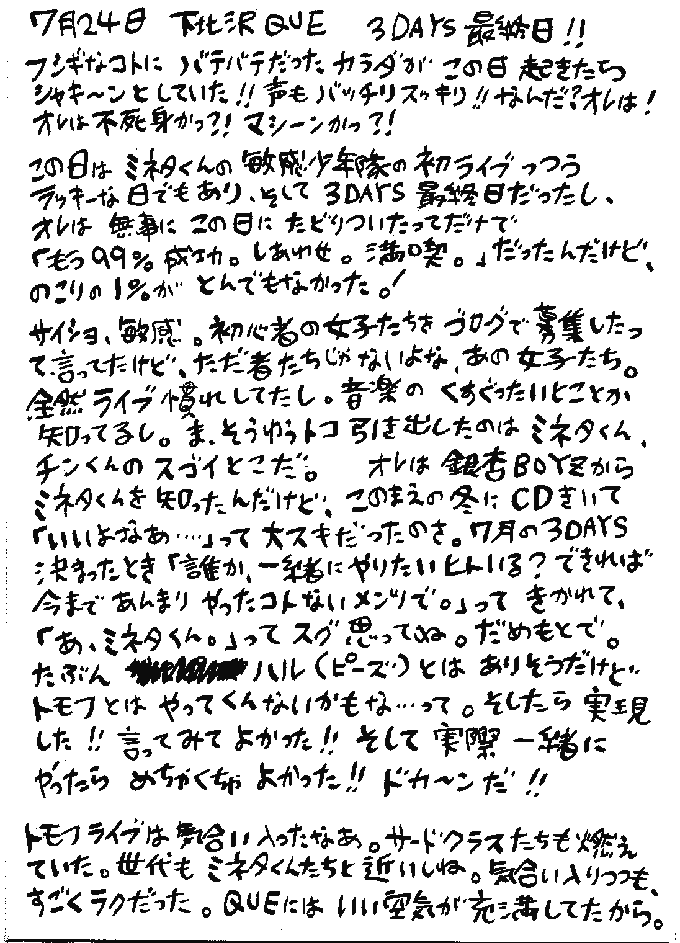 7月24日 下北沢QUE 3DAYS 最終日!!
フシギなコトに バテバテだった カラダが この日 起きたら
シャキ〜ンとしていた!! 声もバッチリスッキリ!! なんだ?オレは!
オレは不死身かっ?! マシーンかっ?!
この日は ミネタくんの 敏感少年隊の初ライブっつう
ラッキーな日でもあり、そして 3DAYS 最終日だったし、
オレは 無事に この日に たどりついたってだけで
「もう99%成功。しあわせ。満喫。」だったんだけど、
のこりの1%が とんでもなかった。!
サイショ、敏感。初心者の女子たちを ブログで募集したっ
て言ってたけど、ただ者たちじゃないよな、あの女子たち。
全然ライブ慣れしてたし。音楽の くすぐったいとことか
知ってるし。ま、そうゆうトコ引き出したのは ミネタくん、
チンくんの スゴイとこだ。 オレは 銀杏BOYZから
ミネタくんを 知ったんだけど、このまえの冬に CDきいて
「いいよなあ‥‥」って 大スキだったのさ。7月の3DAYS
決まったとき「誰か、一緒にやりたいヒトいる?できれば
今まで あんまり やったコトないメンツで。」って きかれて、
「あ、ミネタくん。」って スグ 思ってね。だめもとで。
たぶん ハル(ピーズ)とは ありそうだけど
トモフとは やってくんないかもな…って。そしたら 実現
した!! 言ってみて よかった!! そして 実際 一緒に
やったら めちゃくちゃ よかった!! ドカ〜ンだ!!
トモフライブは 気合い入ったなあ。サードクラスたちも燃え
ていた。世代も ミネタくんたちと近いしね。気合い入りつつも、
すごくラクだった。QUEには いい空気が 充満してたから。